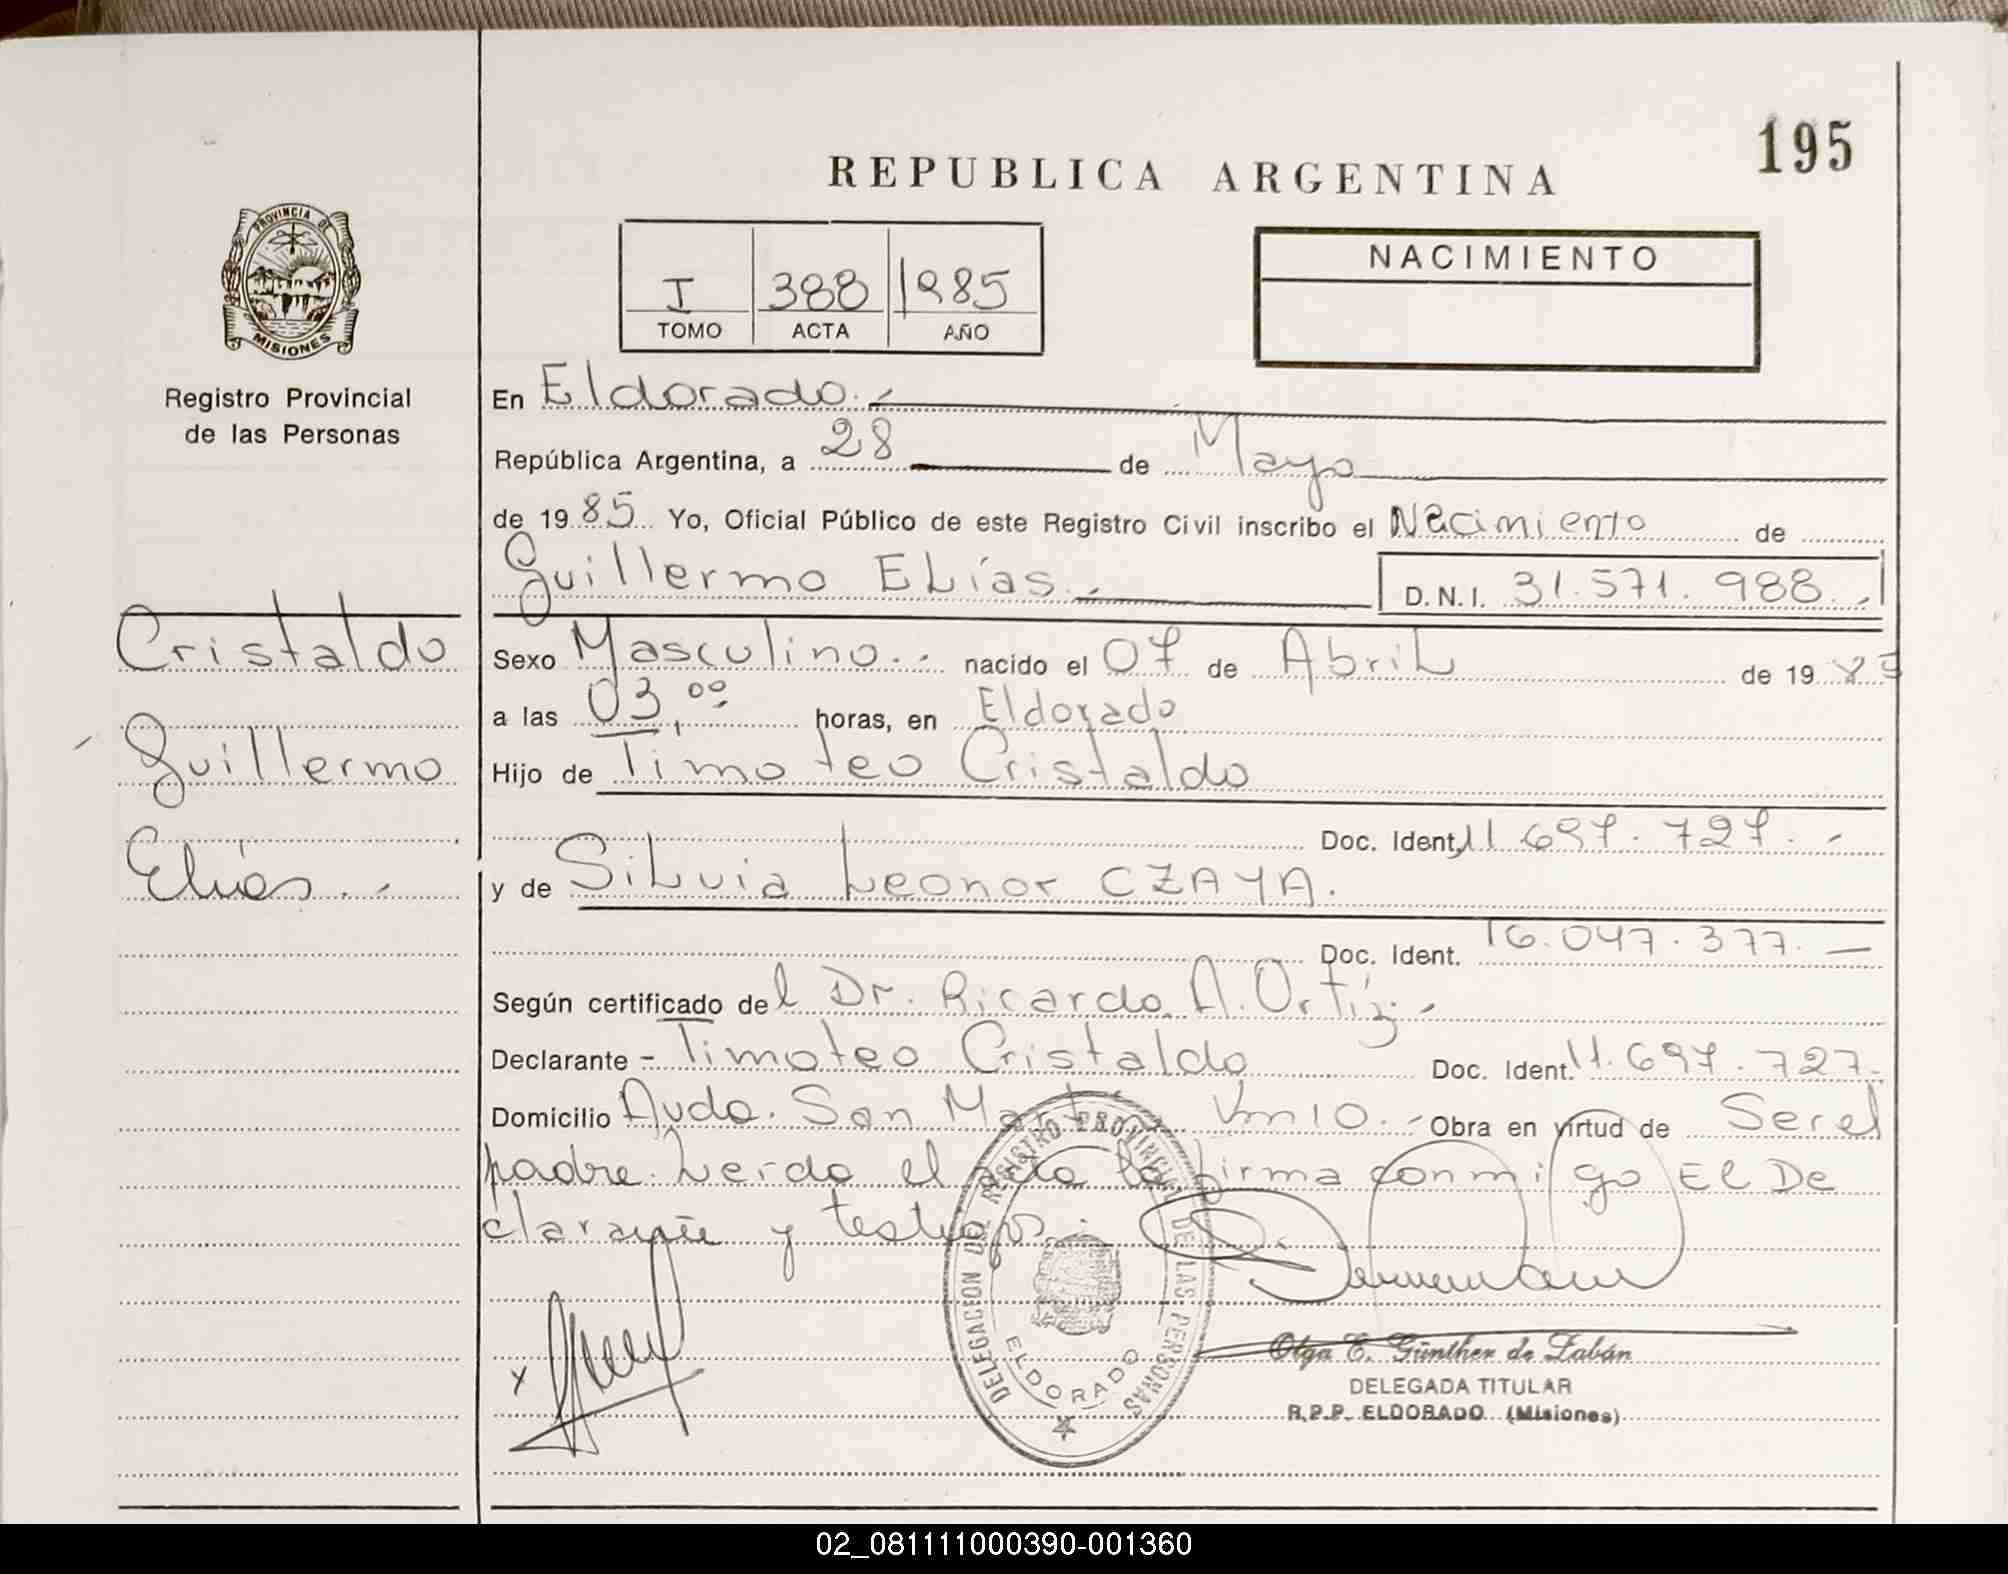 195
REPUBLICA ARGENTINA
PROVINCIA DE
MISIONES
Registro Provincial
de las Personas
I 388 1985
TOMO ACTA AÑO
NACIMIENTO
En Eldorado.-
República Argentina, a 28 de Mayo
de 1985 Yo, Oficial Público de este Registro Civil inscribo el Nacimiento de
Guillermo ELías.- D.N.I. 31.571.988.-
Cristaldo
Guillermo
Elías.-
Sexo Masculino.- nacido el 07 de AbriL de 1985
a las 03,00 horas, en Eldorado
Hijo de Timoteo Cristaldo
Doc. Ident. 11.697.727.-
y de SiLvia Leonor CZAYA.
Doc. Ident. 16.047.377.-
Según certificado del Dr. Ricardo A. Ortíz.-
Declarante - Timoteo Cristaldo Doc. Ident. 11.697.727.-
Domicilio Avda. San Martín Km 10.- Obra en virtud de Ser el
padre. Leida el acta la firma conmigo El De
clarante y testigos.
DELEGACION DEL REGISTRO PROVINCIAL DE LAS PERSONAS
ELDORADO
x
Olga E. Günther de Labán
DELEGADA TITULAR
R.P.P. ELDORADO (Misiones)
02_081111000390-001360